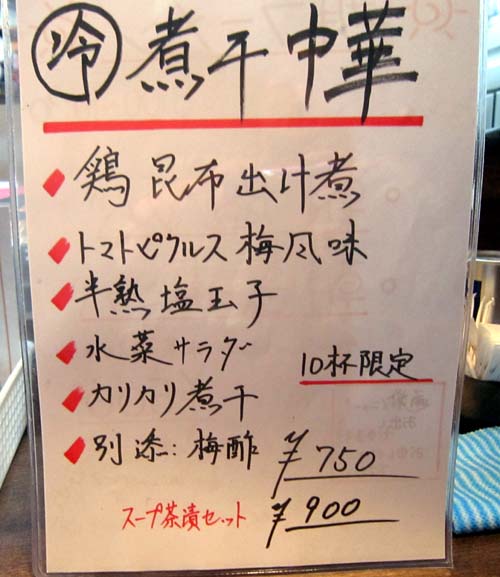 冷 煮干中華
鶏昆布出汁煮
トマトピクルス梅風味
半熟塩玉子
水菜サラダ
10杯限定
カリカリ煮干
別添:梅酢
¥750
スープ茶漬セット ¥900